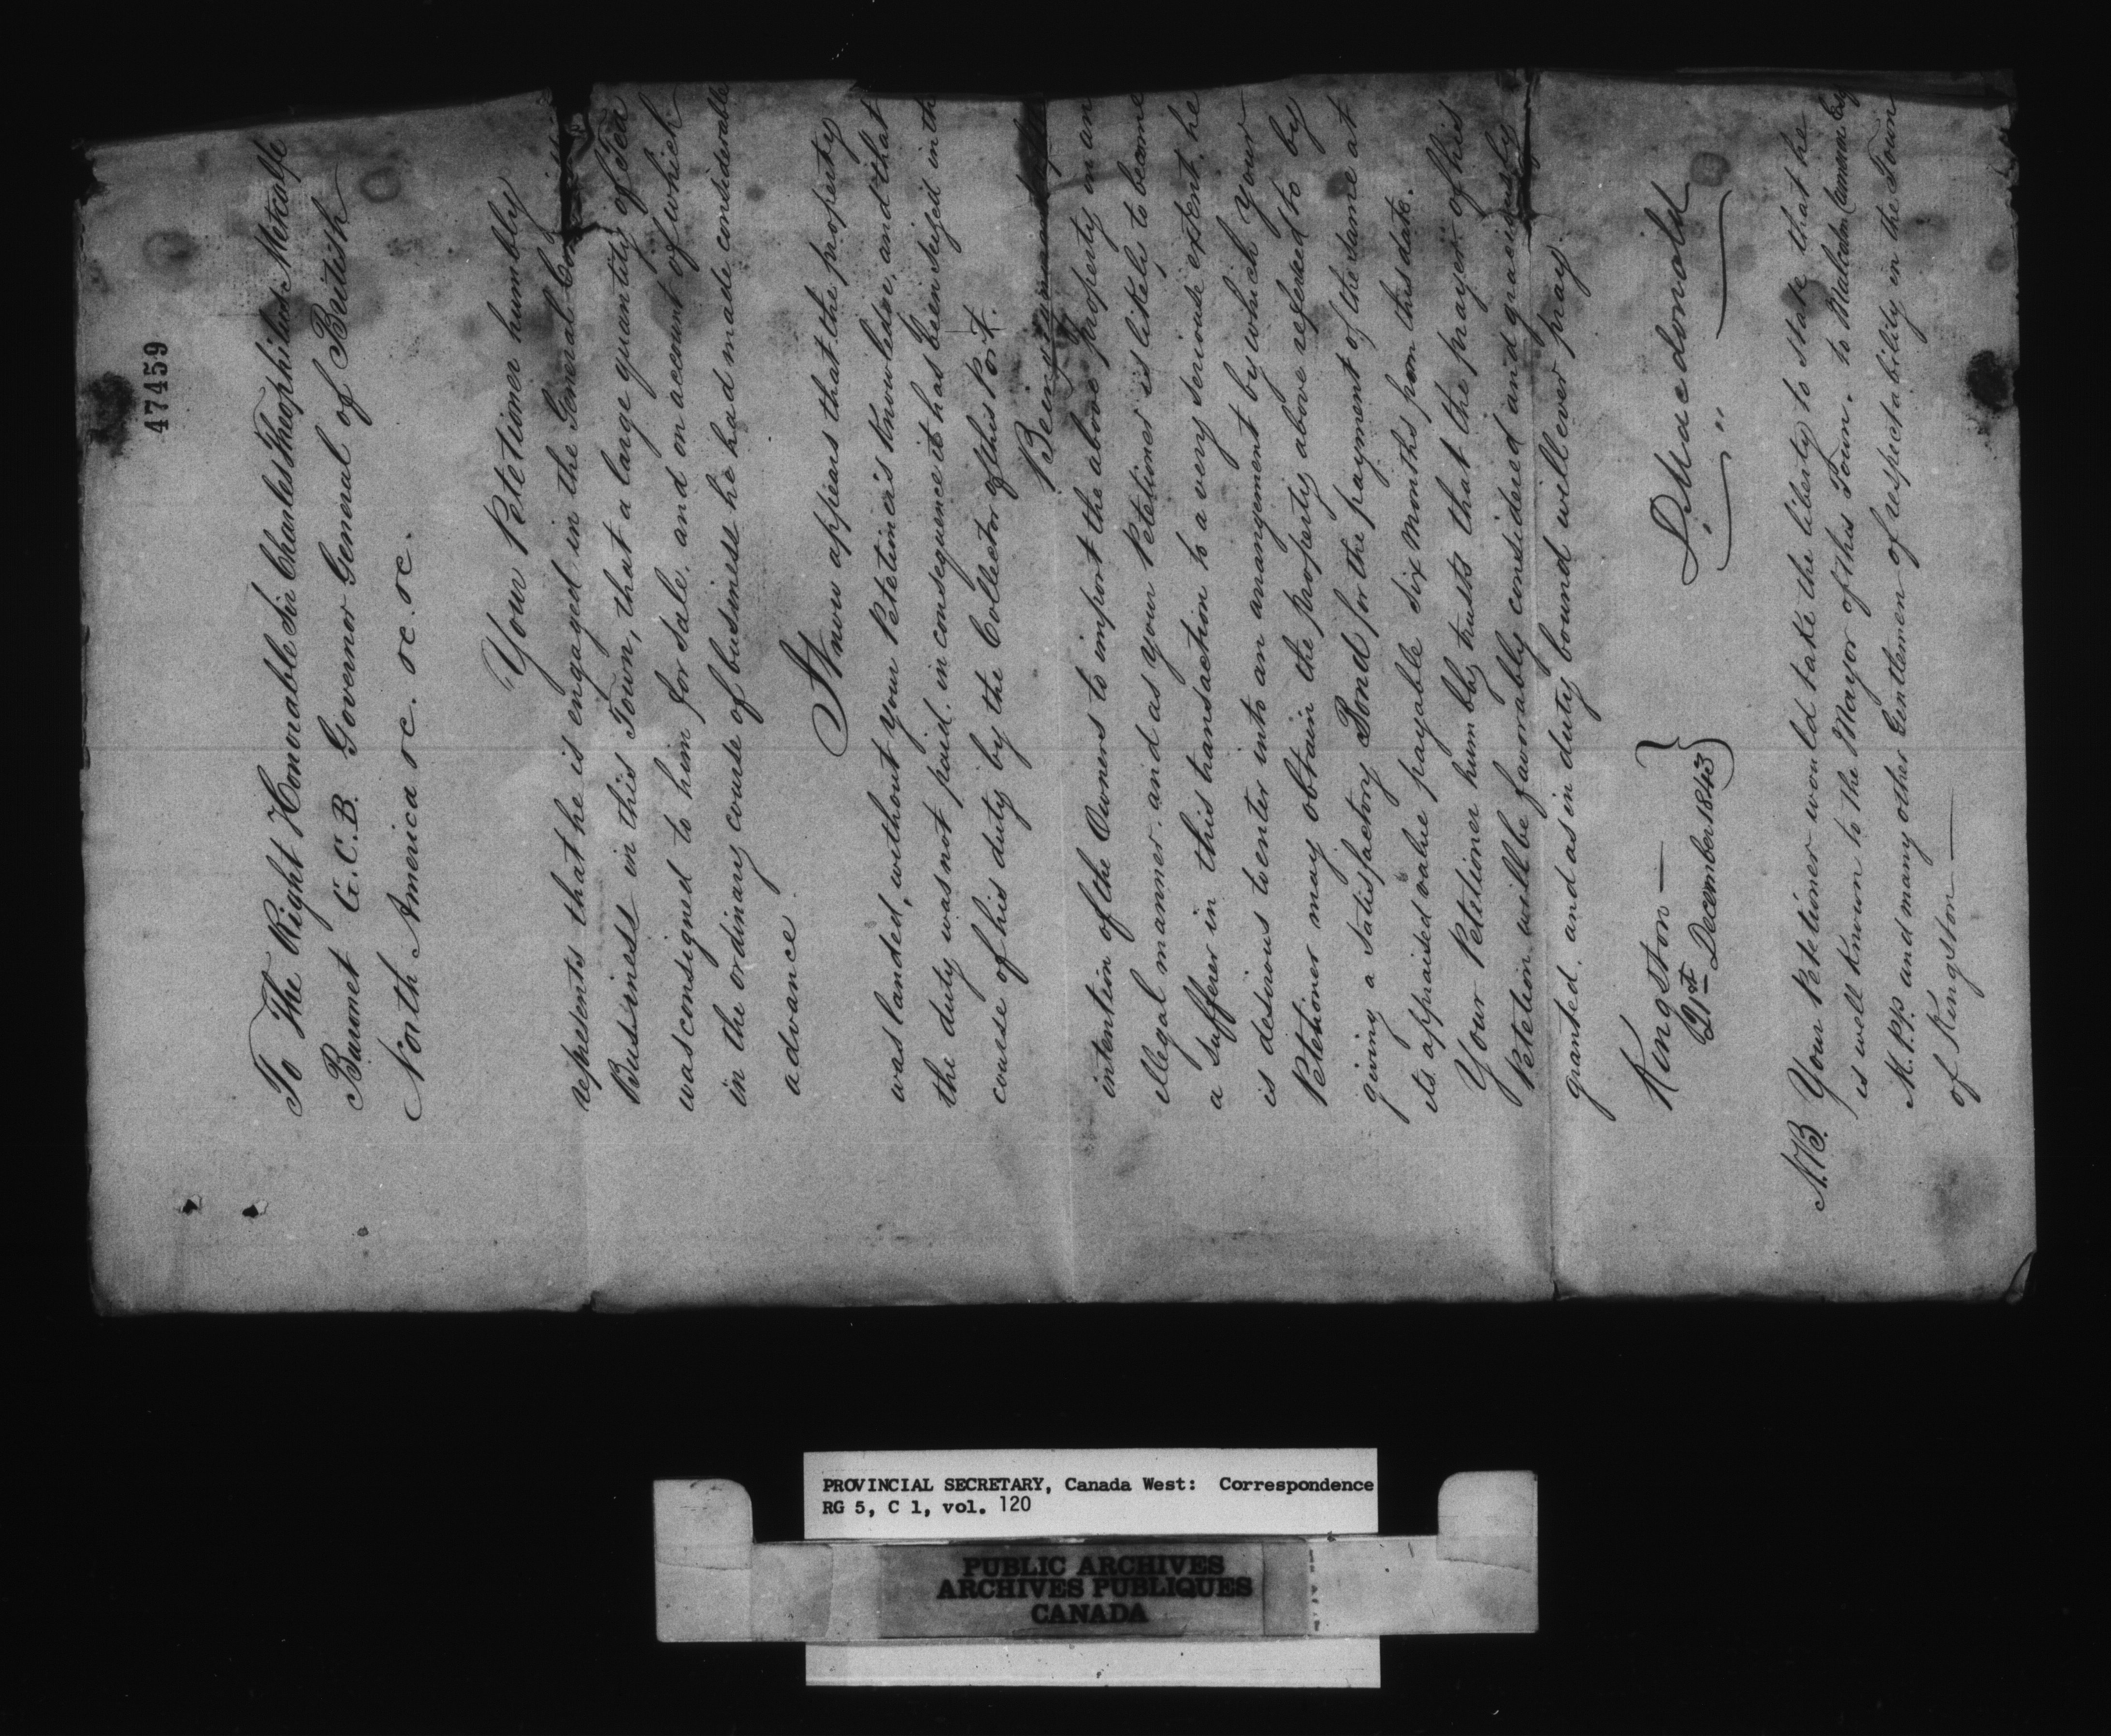 47459
To The Right Honorable Sir Charles Theophilus Metcalfe
Baronet G.C.B. Governor General of British
North America &c. &c. &c.
Your Petetioner humbly
represents that he is engaged in the General
Business in this Town, that a large quantity of Tea
was consigned to him for Sale. and on account of which
in the ordinary course of business he had made considerable
advance.
It now appears that the property
was landed, without your Petetioner's Knowledge, and that
the duty was not paid. in consequence it has been seized in the
course of his duty by the Collector of this Port.
Being
intention of the Owners to import the above property in an
illegal manner. and as your Petetioner is likely to become
a sufferer in this transaction to a very seriouse extent, he
is desirous to enter into an arrangement by which your
Petetioner may obtain the property above refered to by
giving a satisfactory Bond for the payment of the same at
its appraised value payable six months from this date.
Your Petetioner humbly trusts that the prayer of his
Petetion will be favorably considered and graciously
granted. and as in duty bound will ever pray.
Kingston —
21st December 1843 }
D. Macdonald
N.B. Your Petetioner would take the liberty to state that he
is well known to the Mayor of this Town. to Malcolm Cameron Esq
M.P.P. and many other Gentlemen of respectability in the Town
of Kingston —
PROVINCIAL SECRETARY, Canada West: Correspondence
RG 5, C 1, vol. 120
PUBLIC ARCHIVES
ARCHIVES PUBLIQUES
CANADA